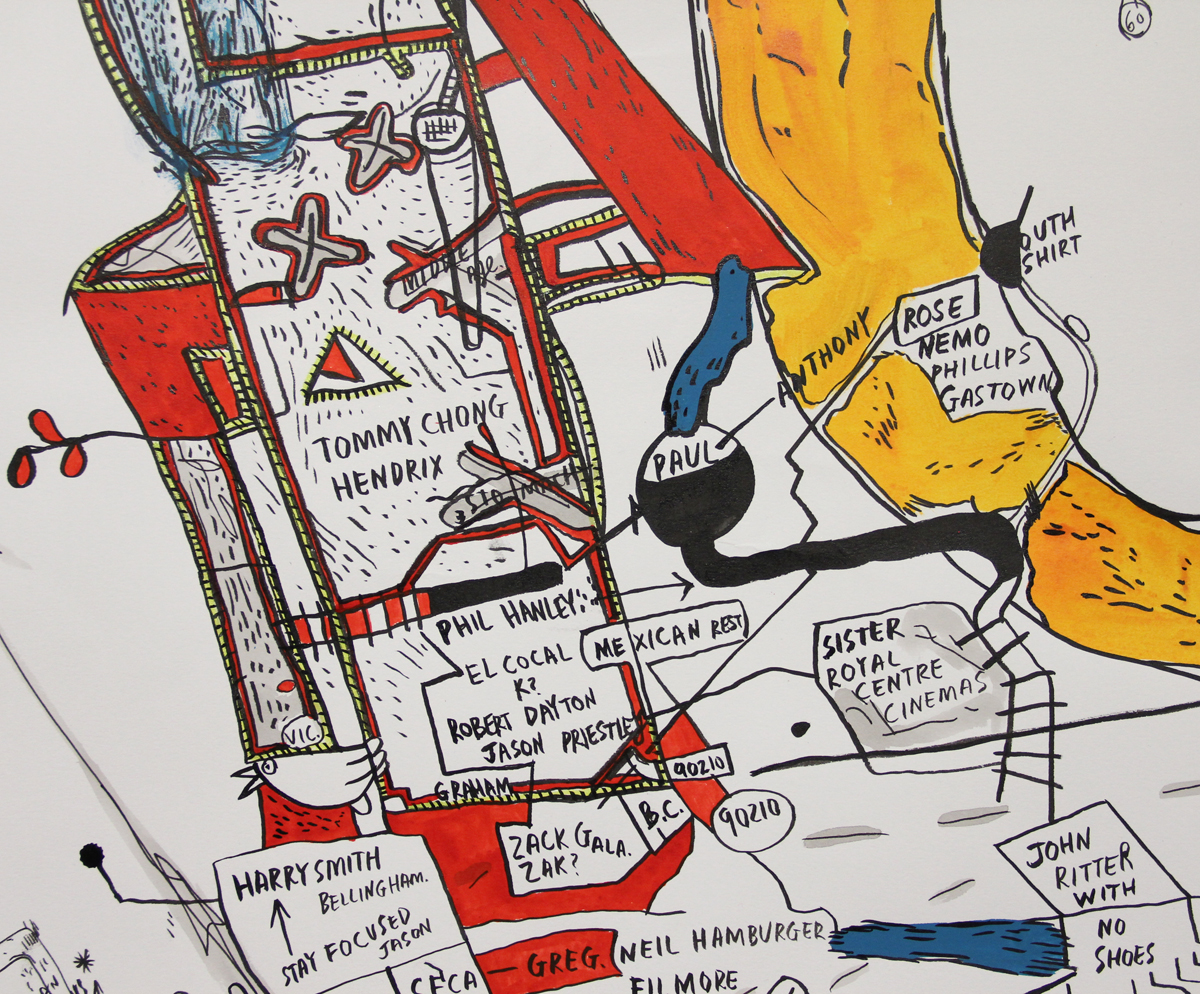 60
OUTH
SHIRT
MIDDLE
AGE.
ROSE
NEMO
PHILLIPS
GASTOWN
ANTHONY
TOMMY CHONG
HENDRIX
PAUL
PHIL HANLEY
MEXICAN REST
EL COCAL
K?
ROBERT DAYTON
JASON PRIESTLEY
SISTER
ROYAL
CENTRE
CINEMAS
VIC.
90210
GRAHAM
B.C.
90210
ZACK GALA.
ZAK?
JOHN
RITTER
WITH
NO
SHOES
HARRY SMITH
BELLINGHAM.
STAY FOCUSED
JASON
CFCA
GREG.
NEIL HAMBURGER
FILMORE